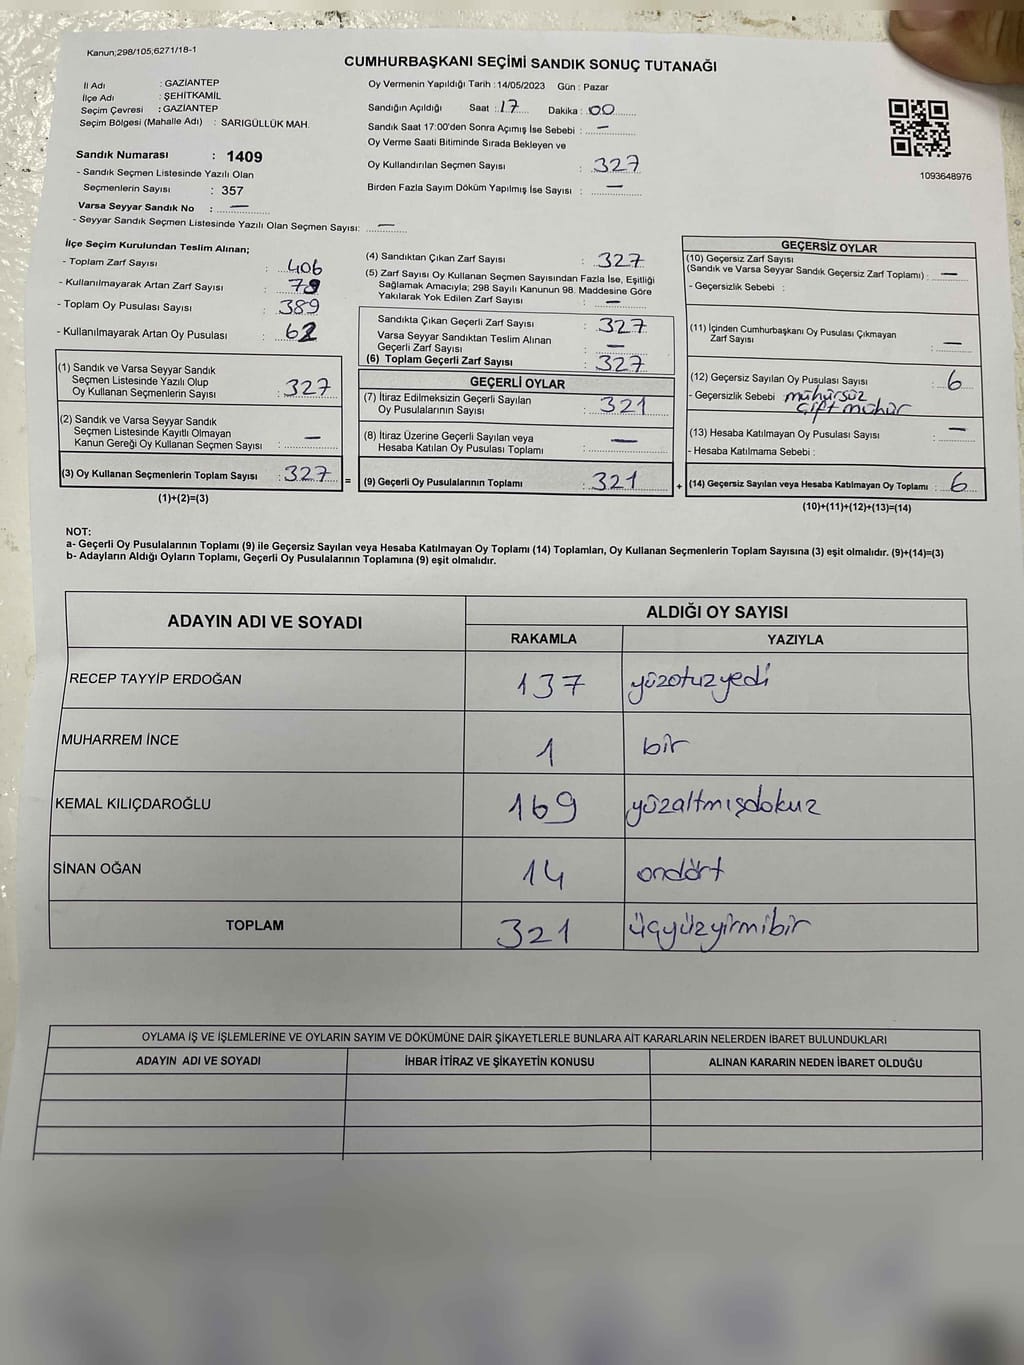 Kanun;298/105;6271/18-1
CUMHURBAŞKANI SEÇİMİ SANDIK SONUÇ TUTANAĞI
İl Adı : GAZİANTEP
İlçe Adı : ŞEHİTKAMİL
Seçim Çevresi : GAZİANTEP
Seçim Bölgesi (Mahalle Adı) : SARIGÜLLÜK MAH.
Sandık Numarası : 1409
- Sandık Seçmen Listesinde Yazılı Olan
Seçmenlerin Sayısı : 357
Varsa Seyyar Sandık No : —
- Seyyar Sandık Seçmen Listesinde Yazılı Olan Seçmen Sayısı: —
Oy Vermenin Yapıldığı Tarih : 14/05/2023 Gün : Pazar
Sandığın Açıldığı Saat : 17 Dakika : 00
Sandık Saat 17:00'den Sonra Açımış İse Sebebi : —
Oy Verme Saati Bitiminde Sırada Bekleyen ve
Oy Kullandırılan Seçmen Sayısı : 327
Birden Fazla Sayım Döküm Yapılmış İse Sayısı : —
1093648976
İlçe Seçim Kurulundan Teslim Alınan;
- Toplam Zarf Sayısı : 406
- Kullanılmayarak Artan Zarf Sayısı : 79
- Toplam Oy Pusulası Sayısı : 389
- Kullanılmayarak Artan Oy Pusulası : 62
(1) Sandık ve Varsa Seyyar Sandık
Seçmen Listesinde Yazılı Olup
Oy Kullanan Seçmenlerin Sayısı : 327
(2) Sandık ve Varsa Seyyar Sandık
Seçmen Listesinde Kayıtlı Olmayan
Kanun Gereği Oy Kullanan Seçmen Sayısı : —
(3) Oy Kullanan Seçmenlerin Toplam Sayısı : 327
(1)+(2)=(3)
(4) Sandıktan Çıkan Zarf Sayısı : 327
(5) Zarf Sayısı Oy Kullanan Seçmen Sayısından Fazla İse, Eşitliği
Sağlamak Amacıyla; 298 Sayılı Kanunun 98. Maddesine Göre
Yakılarak Yok Edilen Zarf Sayısı : —
Sandıkta Çıkan Geçerli Zarf Sayısı : 327
Varsa Seyyar Sandıktan Teslim Alınan
Geçerli Zarf Sayısı : —
(6) Toplam Geçerli Zarf Sayısı : 327
GEÇERLİ OYLAR
(7) İtiraz Edilmeksizin Geçerli Sayılan
Oy Pusulalarının Sayısı : 321
(8) İtiraz Üzerine Geçerli Sayılan veya
Hesaba Katılan Oy Pusulası Toplamı : —
= (9) Geçerli Oy Pusulalarının Toplamı : 321
GEÇERSİZ OYLAR
(10) Geçersiz Zarf Sayısı
(Sandık ve Varsa Seyyar Sandık Geçersiz Zarf Toplamı) : —
- Geçersizlik Sebebi :
(11) İçinden Cumhurbaşkanı Oy Pusulası Çıkmayan
Zarf Sayısı : —
(12) Geçersiz Sayılan Oy Pusulası Sayısı : 6
- Geçersizlik Sebebi : mühürsüz
çift mühür
(13) Hesaba Katılmayan Oy Pusulası Sayısı : —
- Hesaba Katılmama Sebebi :
+ (14) Geçersiz Sayılan veya Hesaba Katılmayan Oy Toplamı : 6
(10)+(11)+(12)+(13)=(14)
NOT:
a- Geçerli Oy Pusulalarının Toplamı (9) ile Geçersiz Sayılan veya Hesaba Katılmayan Oy Toplamı (14) Toplamları, Oy Kullanan Seçmenlerin Toplam Sayısına (3) eşit olmalıdır. (9)+(14)=(3)
b- Adayların Aldığı Oyların Toplamı, Geçerli Oy Pusulalarının Toplamına (9) eşit olmalıdır.
ADAYIN ADI VE SOYADI ALDIĞI OY SAYISI
RAKAMLA YAZIYLA
RECEP TAYYİP ERDOĞAN 137 yüzotuzyedi
MUHARREM İNCE 1 bir
KEMAL KILIÇDAROĞLU 169 yüzaltmışdokuz
SİNAN OĞAN 14 ondört
TOPLAM 321 üçyüzyirmibir
OYLAMA İŞ VE İŞLEMLERİNE VE OYLARIN SAYIM VE DÖKÜMÜNE DAİR ŞİKAYETLERLE BUNLARA AİT KARARLARIN NELERDEN İBARET BULUNDUKLARI
ADAYIN ADI VE SOYADI İHBAR İTİRAZ VE ŞİKAYETİN KONUSU ALINAN KARARIN NEDEN İBARET OLDUĞU